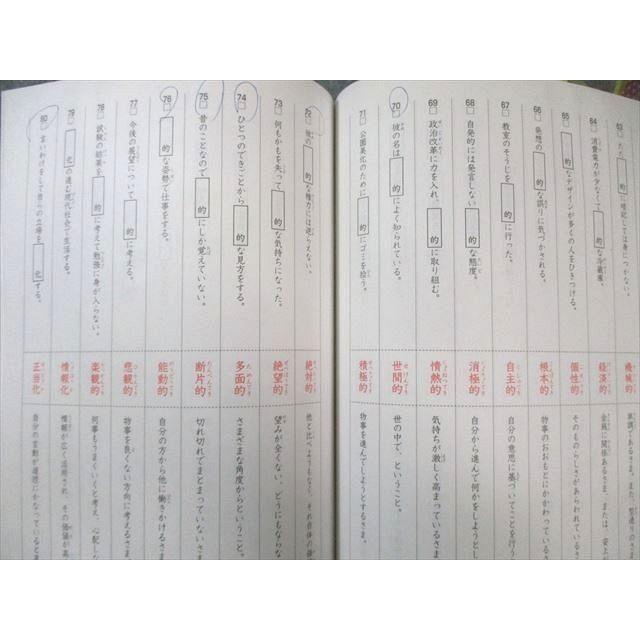 機械的
64 消費電力が少なくて 的 な冷蔵庫。
経済的
65 的 なデザインが多くの人をひきつける。
個性的
そのものらしさがあらわれている
66 発想の 的 な誤りに気づかされる。
根本的
物事のおおもとにかかわっている
67 教室のそうじを 的 に行った。
自主的
自分の意思に基づいてことを行う
68 自発的には発言しない 的 な態度。
消極的
自分から進んで何かをしようとし
69 政治改革に力を入れ、 的 に取り組む。
情熱的
気持ちが激しく高まっているさま
70 彼の名は 的 によく知られている。
世間的
世の中で、ということ。
71 公園美化のために 的 にゴミを拾う。
積極的
物事を進んでしようとするさま。
72 彼の 的 な権力には逆らえない。
絶対的
73 何もかもを失って 的 な気持ちになった。
絶望的
望みが全くない、どうにもならない
74 ひとつのできごとから 的 な見方をする。
多面的
さまざまな角度からということ。
75 昔のことなので 的 にしか覚えていない。
断片的
切れ切れでまとまっていないさま
76 的 な姿勢で仕事をする。
能動的
自分の方から他に働きかけるさま
77 今後の展望について 的 に考える。
悲観的
物事を良くない方向に考えるさま
78 試験の結果を 的 に考えて勉強に身が入らない。
楽観的
何事もうまくいくと考え、心配し
79 化 の進む現代社会で生活する。
情報化
情報が広く活用され、その価値が高
80 言いわけをして自らの立場を 化 する。
正当化
自分の言動が道理にかなっていると